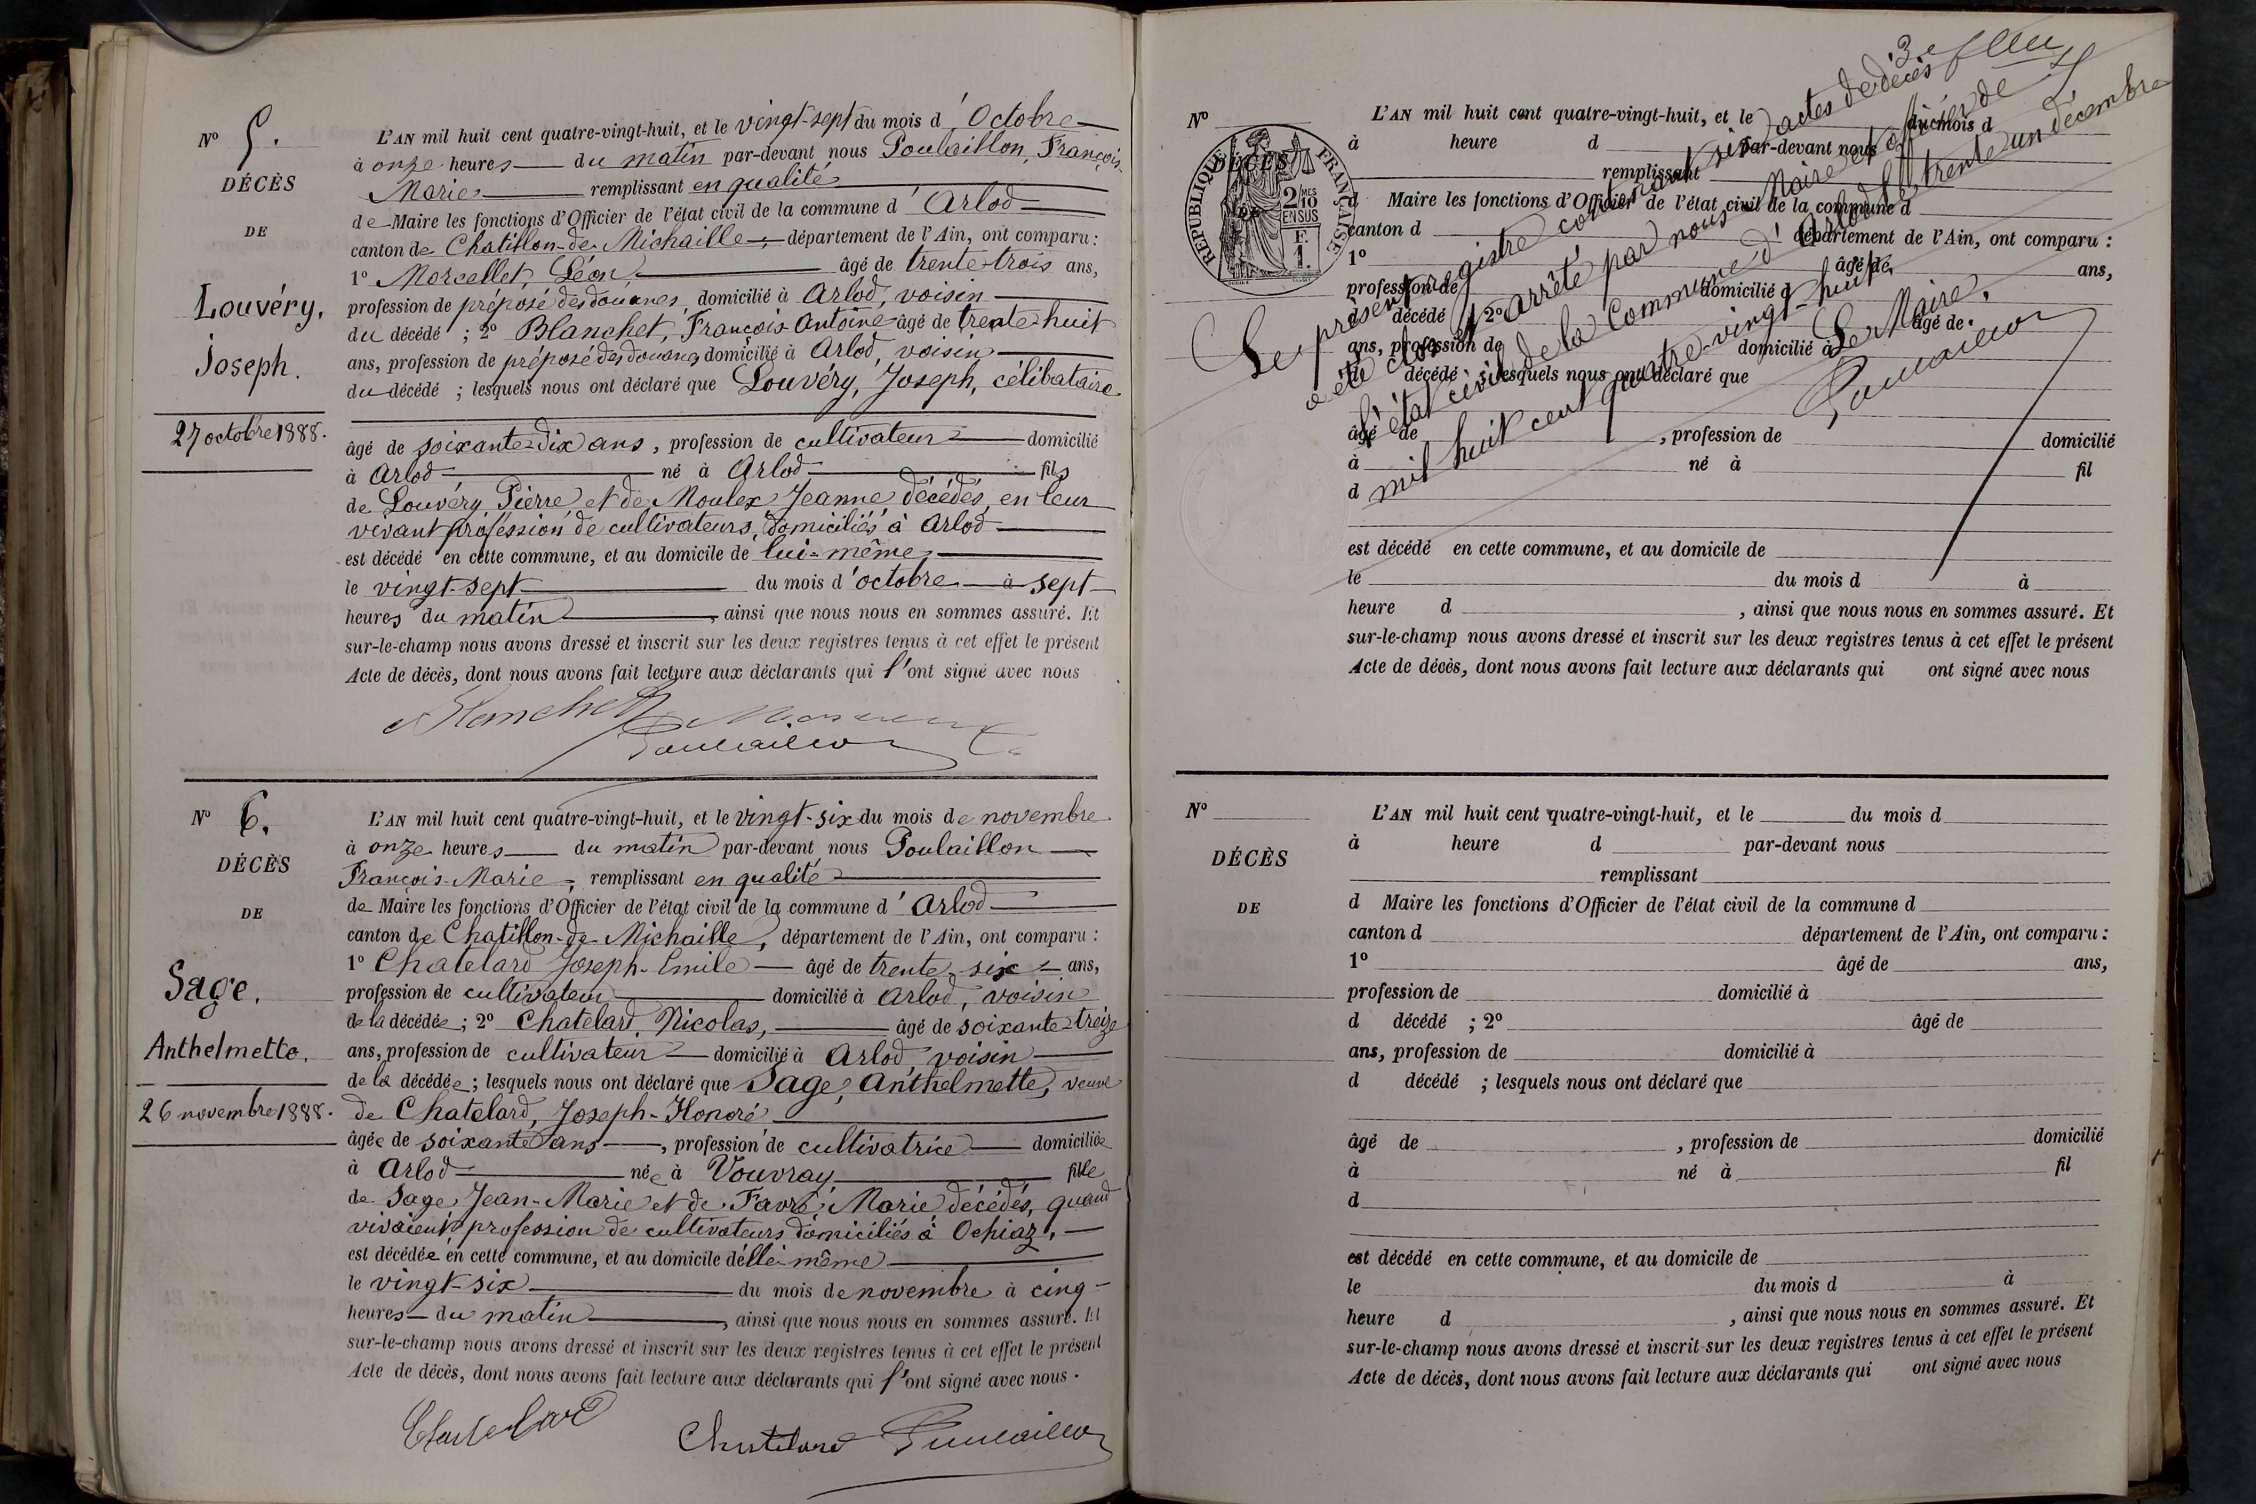 N° 5.
DÉCÈS
DE
Louvéry,
Joseph.
27 octobre 1888.
L'AN mil huit cent quatre-vingt-huit, et le vingt-sept du mois d'Octobre
à onze heures du matin par-devant nous Poulaillon, François-
Marie remplissant en qualité
de Maire les fonctions d'Officier de l'état civil de la commune d'Arlod
canton de Chatillon-de-Michaille, département de l'Ain, ont comparu :
1° Marcellet, Léon âgé de trente-trois ans,
profession de préposé des douanes, domicilié à Arlod, voisin
du décédé ; 2° Blanchet, François-Antoine âgé de trente-huit
ans, profession de préposé des douanes domicilié à Arlod, voisin
du décédé ; lesquels nous ont déclaré que Louvéry, Joseph, célibataire
âgé de soixante-dix ans, profession de cultivateur domicilié
à Arlod né à Arlod fils
de Louvéry Pierre et de Moulex Jeanne décédés, en leur
vivant profession de cultivateurs, domiciliés à Arlod
est décédé en cette commune, et au domicile de lui-même,
le vingt-sept du mois d'octobre à sept
heures du matin, ainsi que nous nous en sommes assuré. Et
sur-le-champ nous avons dressé et inscrit sur les deux registres tenus à cet effet le présent
Acte de décès, dont nous avons fait lecture aux déclarants qui l'ont signé avec nous
Blanchet
Poulaillon
N° 6.
DÉCÈS
DE
Sage.
Anthelmette.
26 novembre 1888.
L'AN mil huit cent quatre-vingt-huit, et le vingt-six du mois de novembre
à onze heures du matin par-devant nous Poulaillon
François-Marie, remplissant en qualité
de Maire les fonctions d'Officier de l'état civil de la commune d'Arlod
canton de Chatillon-de-Michaille, département de l'Ain, ont comparu :
1° Chatelard Joseph-Emile âgé de trente-six ans,
profession de cultivateur domicilié à Arlod, voisin
de la décédée ; 2° Chatelard, Nicolas, âgé de soixante-treize
ans, profession de cultivateur domicilié à Arlod, voisin
de la décédée ; lesquels nous ont déclaré que Sage, Anthelmette, veuve
de Chatelard, Joseph-Honoré
âgée de soixante ans, profession de cultivatrice domiciliée
à Arlod née à Vouvray fille
de Sage, Jean-Marie et de Favre, Marie décédés, quand
vivaient profession de cultivateurs domiciliés à Ochiaz,
est décédée en cette commune, et au domicile d'elle-même
le vingt-six du mois de novembre à cinq
heures du matin, ainsi que nous nous en sommes assuré. Et
sur-le-champ nous avons dressé et inscrit sur les deux registres tenus à cet effet le présent
Acte de décès, dont nous avons fait lecture aux déclarants qui l'ont signé avec nous.
Chatelard
Chatelard Poulaillon
N°
DÉCÈS
RÉPUBLIQUE FRANÇAISE
2/10 MES
EN SUS
F.
1.
L'AN mil huit cent quatre-vingt-huit, et le du mois d
à heure d par-devant nous
remplissant
d Maire les fonctions d'Officier de l'état civil de la commune d
canton d département de l'Ain, ont comparu :
1° âgé de ans,
profession de domicilié à
d décédé ; 2° âgé de
ans, profession de domicilié à
d décédé ; lesquels nous ont déclaré que
âgé de , profession de domicilié
à né à fil
d
est décédé en cette commune, et au domicile de
le du mois d à
heure d , ainsi que nous nous en sommes assuré. Et
sur-le-champ nous avons dressé et inscrit sur les deux registres tenus à cet effet le présent
Acte de décès, dont nous avons fait lecture aux déclarants qui ont signé avec nous
3e
Le présent registre contenant six actes de décès
a été clos et arrêté par nous Maire et officier de
l'état civil de la Commune d'Arlod le trente un décembre
mil huit cent quatre-vingt-huit
Le Maire,
Poulaillon
N°
DÉCÈS
DE
L'AN mil huit cent quatre-vingt-huit, et le du mois d
à heure d par-devant nous
remplissant
d Maire les fonctions d'Officier de l'état civil de la commune d
canton d département de l'Ain, ont comparu :
1° âgé de ans,
profession de domicilié à
d décédé ; 2° âgé de
ans, profession de domicilié à
d décédé ; lesquels nous ont déclaré que
âgé de , profession de domicilié
à né à fil
d
est décédé en cette commune, et au domicile de
le du mois d à
heure d , ainsi que nous nous en sommes assuré. Et
sur-le-champ nous avons dressé et inscrit sur les deux registres tenus à cet effet le présent
Acte de décès, dont nous avons fait lecture aux déclarants qui ont signé avec nous